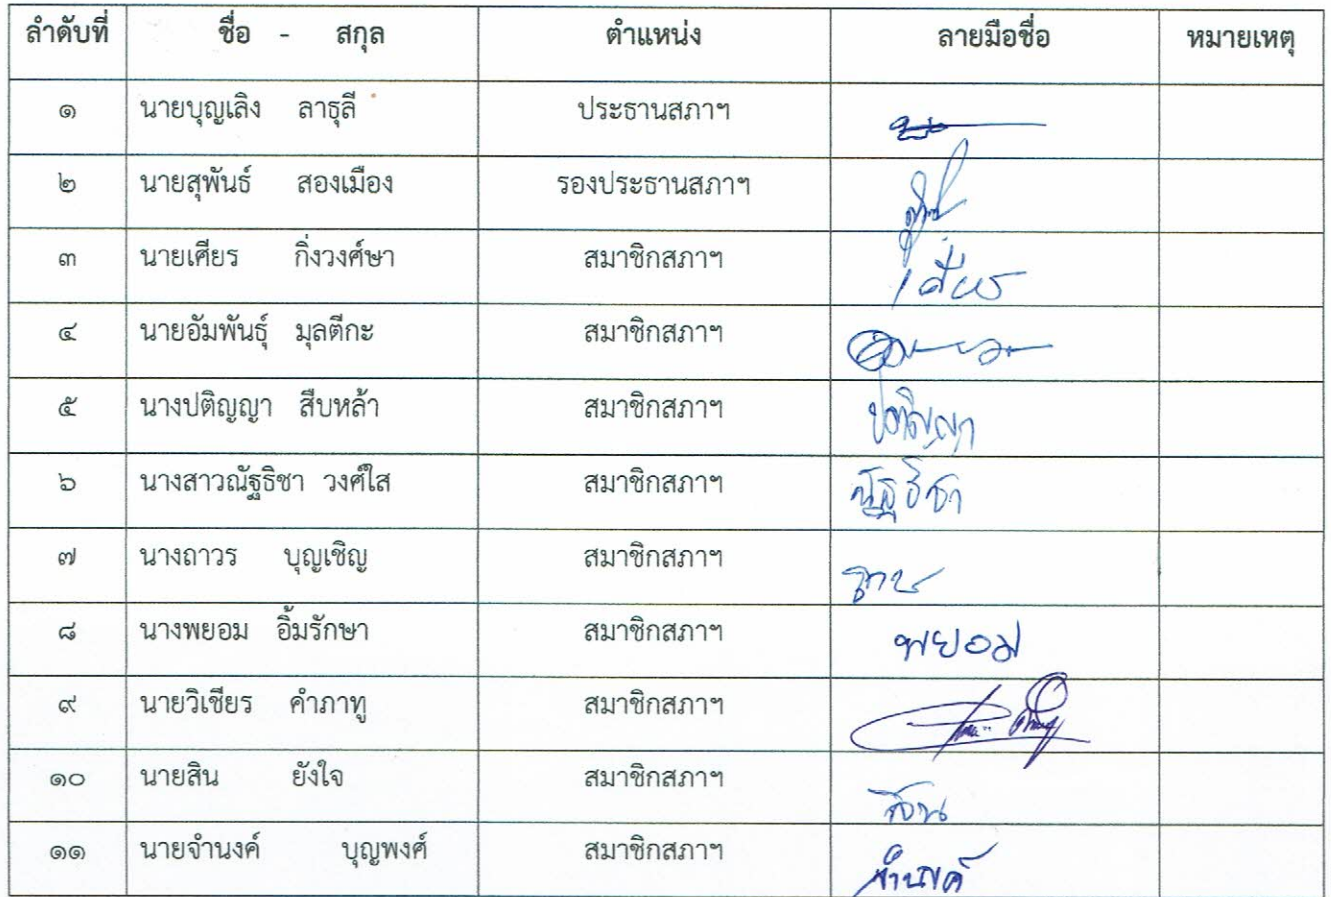 ลำดับที่ ชื่อ - สกุล ตำแหน่ง ลายมือชื่อ หมายเหตุ
๑ นายบุญเลิง ลาธุลี ประธานสภาฯ
๒ นายสุพันธ์ สองเมือง รองประธานสภาฯ
๓ นายเศียร กิ่งวงศ์ษา สมาชิกสภาฯ เศียร
๔ นายอัมพันธุ์ มุลตีกะ สมาชิกสภาฯ
๕ นางปติญญา สืบหล้า สมาชิกสภาฯ ปติญญา
๖ นางสาวณัฐธิชา วงศ์ใส สมาชิกสภาฯ ณัฐธิชา
๗ นางถาวร บุญเชิญ สมาชิกสภาฯ
๘ นางพยอม อิ้มรักษา สมาชิกสภาฯ พยอม
๙ นายวิเชียร คำภาทู สมาชิกสภาฯ
๑๐ นายสิน ยังใจ สมาชิกสภาฯ สิน
๑๑ นายจำนงค์ บุญพงศ์ สมาชิกสภาฯ จำนงค์